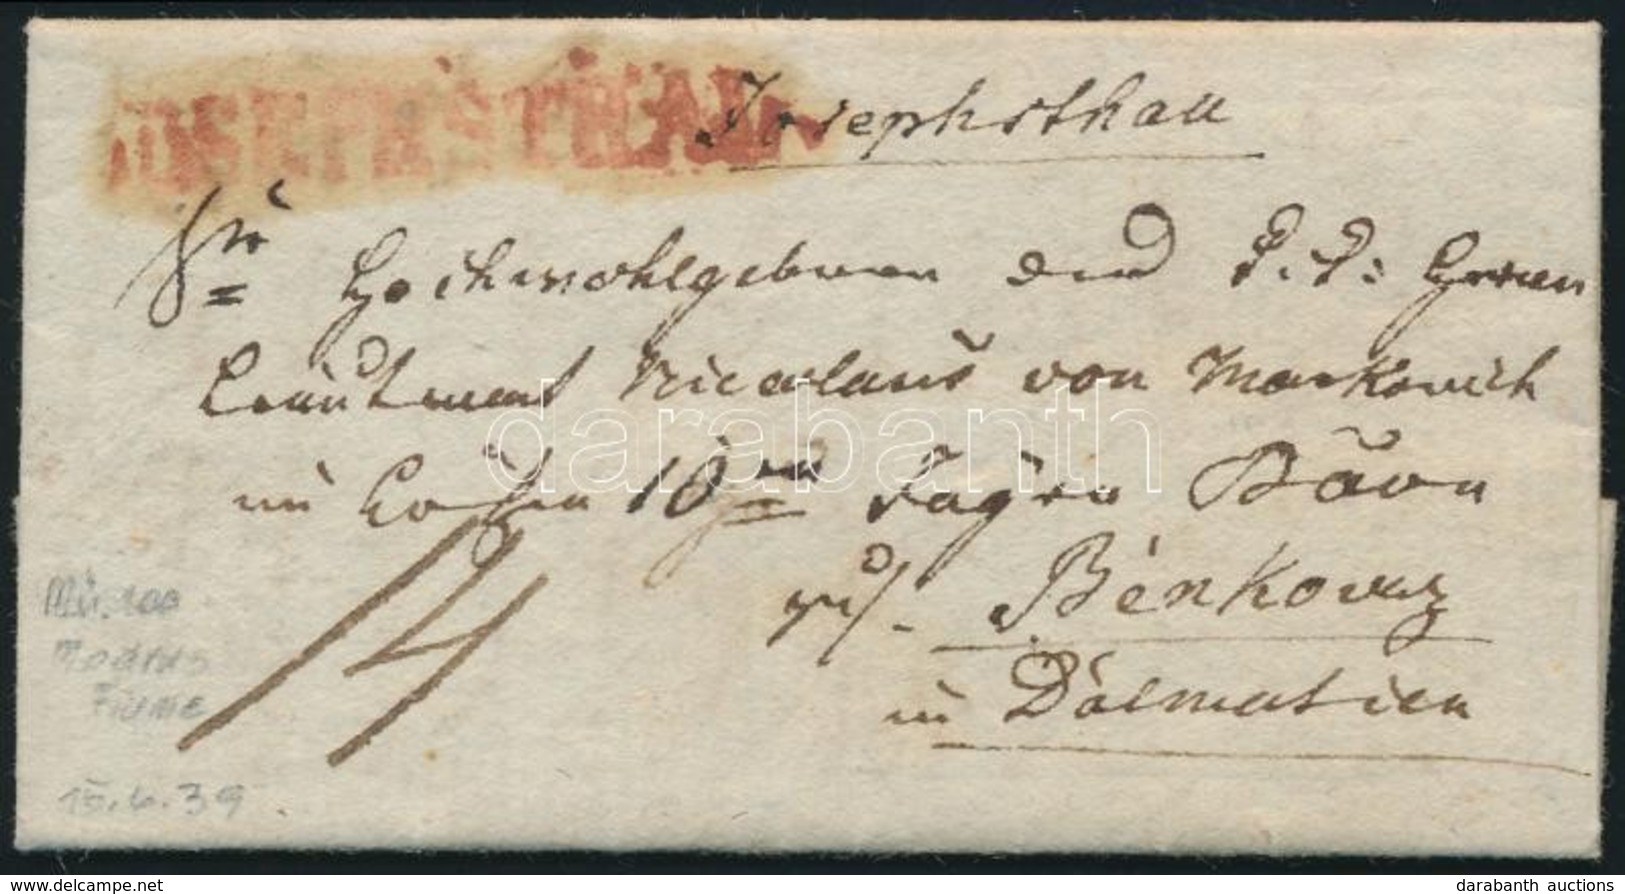 JOSEPHSTHAL
Josephsthall
Sr Hochwohlgeboren dem H: H: Herrn
Leutnant Nicolaus von Markovich
im 10ten Jäger Baon
zu/. Bénkovaz
in Dalmatien
14
Fiume
15.6.39
darabanth
delcampe.net
darabanth auctions